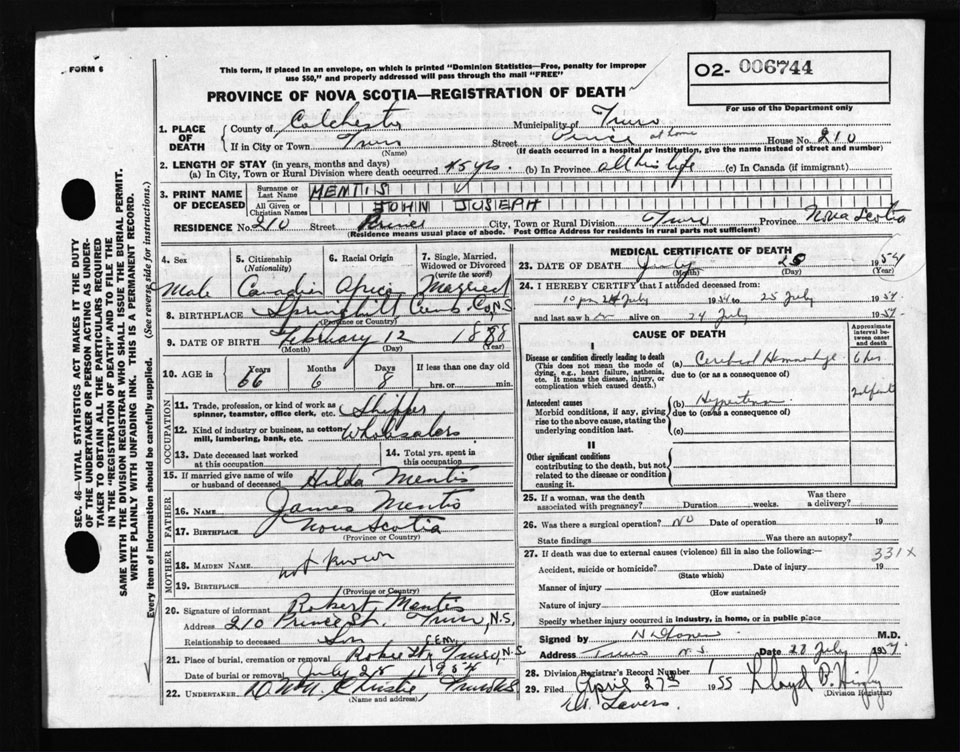 FORM 6
This form, if placed in an envelope, on which is printed "Dominion Statistics—Free, penalty for improper
use $50," and properly addressed will pass through the mail "FREE"
O2- 006744
For use of the Department only
PROVINCE OF NOVA SCOTIA—REGISTRATION OF DEATH
1. PLACE OF DEATH { County of Colchester Municipality of Truro
If in City or Town Truro (Name) Street Prince at home House No. 210
(If death occurred in a hospital or institution, give the name instead of street and number)
2. LENGTH OF STAY (in years, months and days)
(a) In City, Town or Rural Division where death occurred 45 yrs. (b) In Province all his life (c) In Canada (if immigrant)
3. PRINT NAME OF DECEASED { Surname or Last Name MENTIS
All Given or Christian Names JOHN JOSEPH
RESIDENCE No. 210 Street Prince City, Town or Rural Division Truro Province Nova Scotia
(Residence means usual place of abode. Post Office Address for residents in rural parts not sufficient)
4. Sex 5. Citizenship (Nationality) 6. Racial Origin 7. Single, Married, Widowed or Divorced (write the word)
Male Canadian African Married
8. BIRTHPLACE Springhill Cumb. Co, N.S.
(Province or Country)
9. DATE OF BIRTH February 12 1888
(Month) (Day) (Year)
10. AGE in { Years 66 Months 6 Days 8 If less than one day
hrs. or min.
OCCUPATION
11. Trade, profession, or kind of work as spinner, teamster, office clerk, etc. Shipper
12. Kind of industry or business, as cotton mill, lumbering, bank, etc. Wholesalers
13. Date deceased last worked at this occupation 14. Total yrs. spent in this occupation
15. If married give name of wife or husband of deceased Hilda Mentis
FATHER
16. Name James Mentis
17. Birthplace Nova Scotia
(Province or Country)
MOTHER
18. Maiden Name not known
19. Birthplace
(Province or Country)
20. Signature of informant Robert Mentis
Address 210 Prince St. Truro, N.S.
Relationship to deceased Son
21. Place of burial, cremation or removal CEM, Truro, N.S.
Date of burial or removal July 28 1954
22. Undertaker Christie, Truro N.S.
(Name and address)
MEDICAL CERTIFICATE OF DEATH
23. DATE OF DEATH July 25 1954
(Month) (Day) (Year)
24. I HEREBY CERTIFY that I attended deceased from:
10 pm 24 July 1954 to 25 July 1954
and last saw h alive on 24 July 1954
CAUSE OF DEATH
Approximate interval between onset and death
I
Disease or condition directly leading to death
(This does not mean the mode of dying, e.g., heart failure, asthenia, etc. It means the disease, injury, or complication which caused death.)
(a) Cerebral Hemorrhage 6 hrs
due to (or as a consequence of)
Antecedent causes
Morbid conditions, if any, giving rise to the above cause, stating the underlying condition last.
(b) Hypertension
due to (or as a consequence of)
(c)
II
Other significant conditions
contributing to the death, but not related to the disease or condition causing it.
25. If a woman, was the death associated with pregnancy? Duration weeks. Was there a delivery?
26. Was there a surgical operation? No Date of operation 19
State findings Was there an autopsy?
27. If death was due to external causes (violence) fill in also the following: 331X
Accident, suicide or homicide? (State which) Date of injury 19
Manner of injury
(How sustained)
Nature of injury
Specify whether injury occurred in industry, in home, or in public place
Signed by M.D.
Address Truro N.S. Date 28 July 1954
28. Division Registrar's Record Number 1
29. Filed April 27th 1955 Lloyd B.
(Division Registrar)
SEC. 46—VITAL STATISTICS ACT MAKES IT THE DUTY
OF THE UNDERTAKER OR PERSON ACTING AS UNDER-
TAKER TO OBTAIN ALL THE PARTICULARS REQUIRED
IN THE "REGISTRATION OF DEATH" AND TO FILE THE
SAME WITH THE DIVISION REGISTRAR WHO SHALL ISSUE THE BURIAL PERMIT.
WRITE PLAINLY WITH UNFADING INK. THIS IS A PERMANENT RECORD.
Every item of information should be carefully supplied. (See reverse side for instructions.)